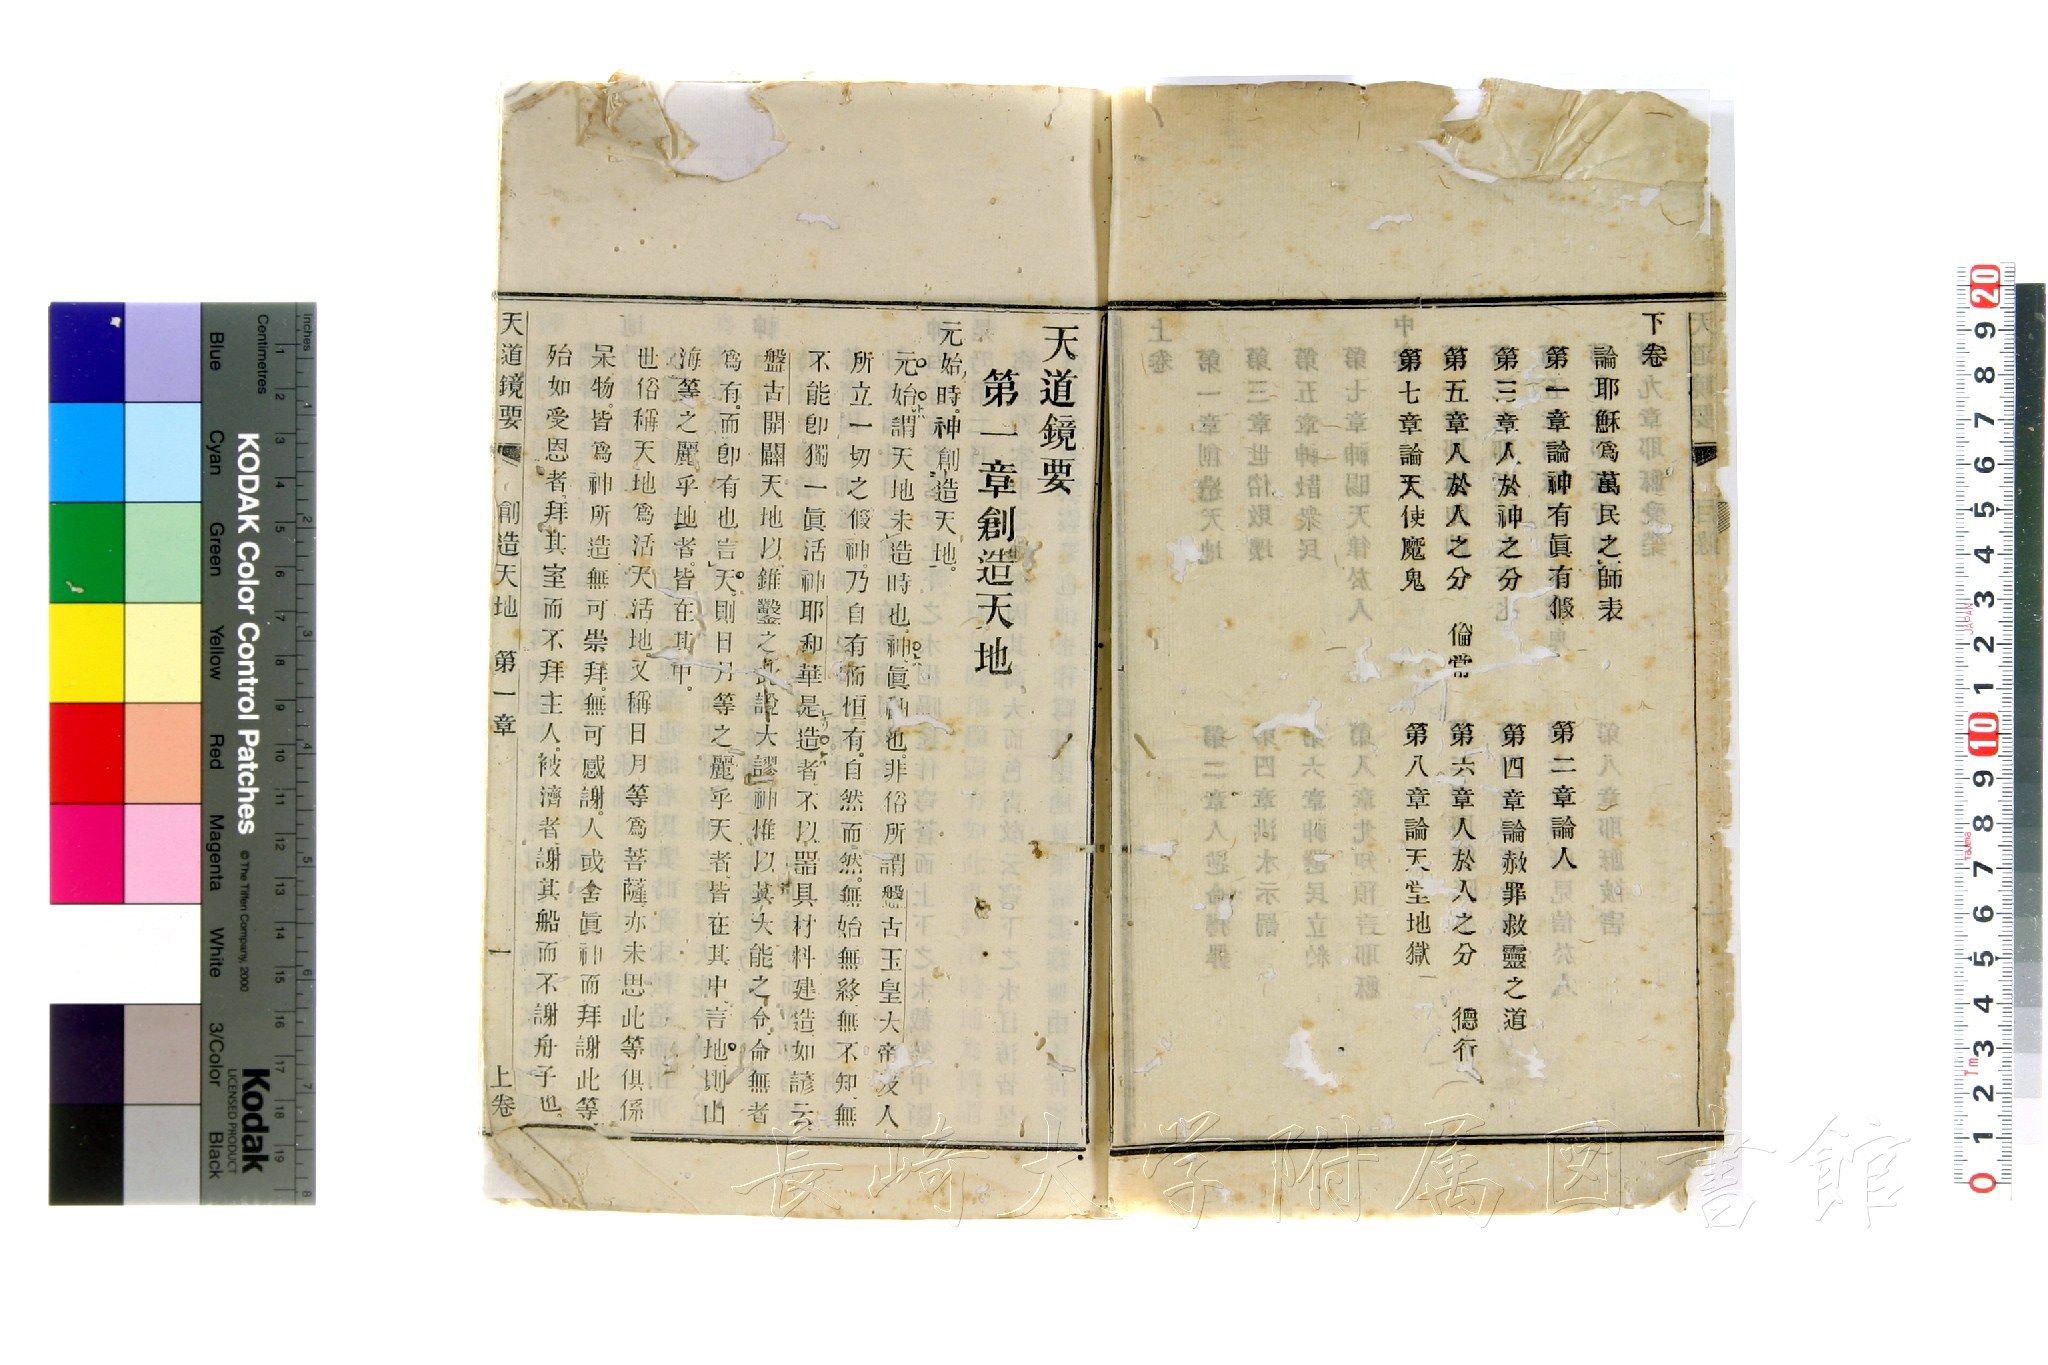 下卷
論耶穌爲萬民之師表
第一章論神有眞有假
第二章論人
第三章人於神之分
第四章論赦罪救靈之道
第五章人於人之分 倫常
第六章人於人之分 德行
第七章論天使魔鬼
第八章論天堂地獄
天道鏡要
第一章創造天地
元始時。神創造天地。
元始謂天地未造時也。神眞神也。非俗所謂盤古玉皇大帝及人
所立一切之假神。乃自有而恒有。自然而然。無始無終無不知無
不能卽獨一眞活神耶和華是造者不以器具材料建造如諺云
盤古開闢天地以錐鑿之此證大謬神惟以其大能之令命無者
爲有。而卽有也言天則日月等之麗乎天者皆在其中言地則山
海等之麗乎地者。皆在其中。
世俗稱天地爲活天活地又稱日月等爲菩薩亦未思此等俱係
呆物。皆爲神所造無可崇拜。無可感謝。人或舍眞神而拜謝此等
殆如受恩者拜其室而不拜主人。被濟者謝其船而不謝舟子也
天道鏡要 創造天地 第一章 一 上卷
KODAK Color Control Patches
© The Tiffen Company, 2000
Kodak
LICENSED PRODUCT
Inches
Centimetres
Blue
Cyan
Green
Yellow
Red
Magenta
White
3/Color
Black
長崎大学附属図書館
20 9 8 7 6 5 4 3 2 1 10 9 8 7 6 5 4 3 2 1 0
JAPAN
Tajima